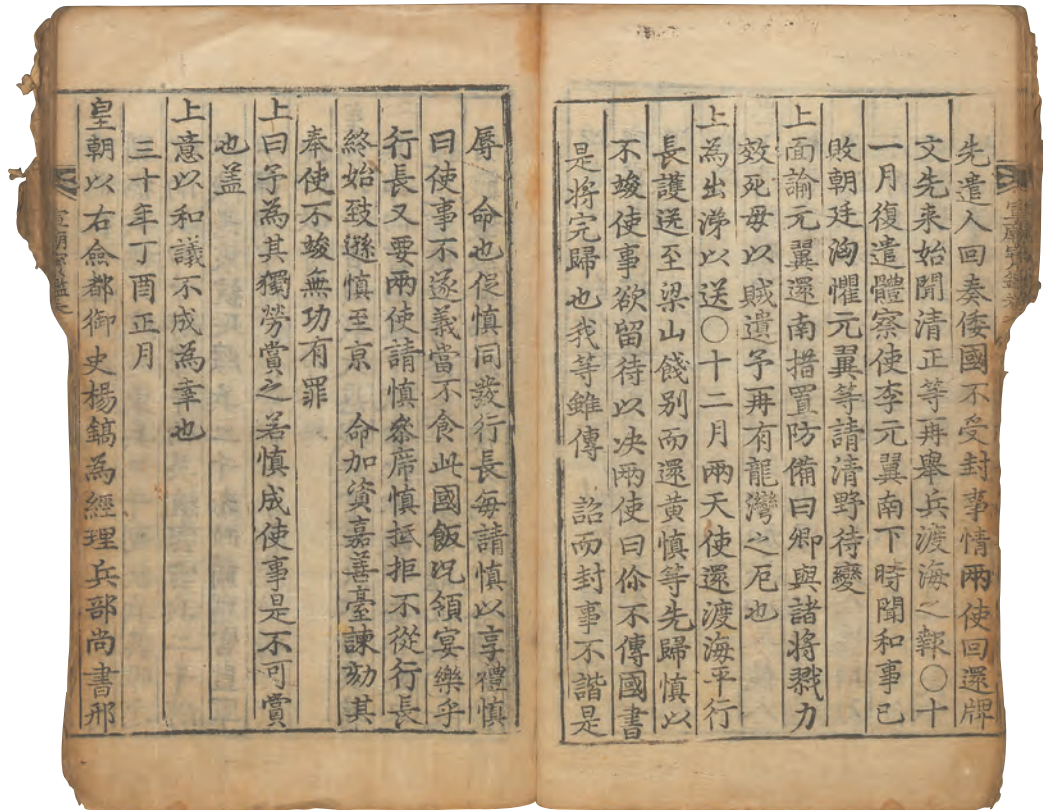 先遣人回奏倭國不受封事情兩使回還牌
文先来始聞清正等再舉兵渡海之報○十
一月復遣體察使李元翼南下時聞和事已
敗朝廷洶懼元翼等請清野待變
上面諭元翼還南措置防備曰卿與諸將戮力
效死毋以賊遺予再有龍灣之厄也
上為出涕以送○十二月兩天使還渡海平行
長護送至梁山餞别而還黄慎等先歸慎以
不竣使事欲留待以决兩使曰伱不傳國書
是将完歸也我等雖傳 詔而封事不諧是
辱 命也促慎同發行長每請慎以享禮慎
曰使事不遂義當不食此國飯况領宴樂乎
行長又要兩使請慎叅席慎抵拒不從行長
終始致遜慎至京 命加資嘉善臺諫劾其
奉使不竣無功有罪
上曰予為其獨勞賞之若慎成使事是不可賞
也盖
上意以和議不成為幸也
三十年丁酉正月
皇朝以右僉都御史楊鎬為經理兵部尚書邢
宣廟寶鑑